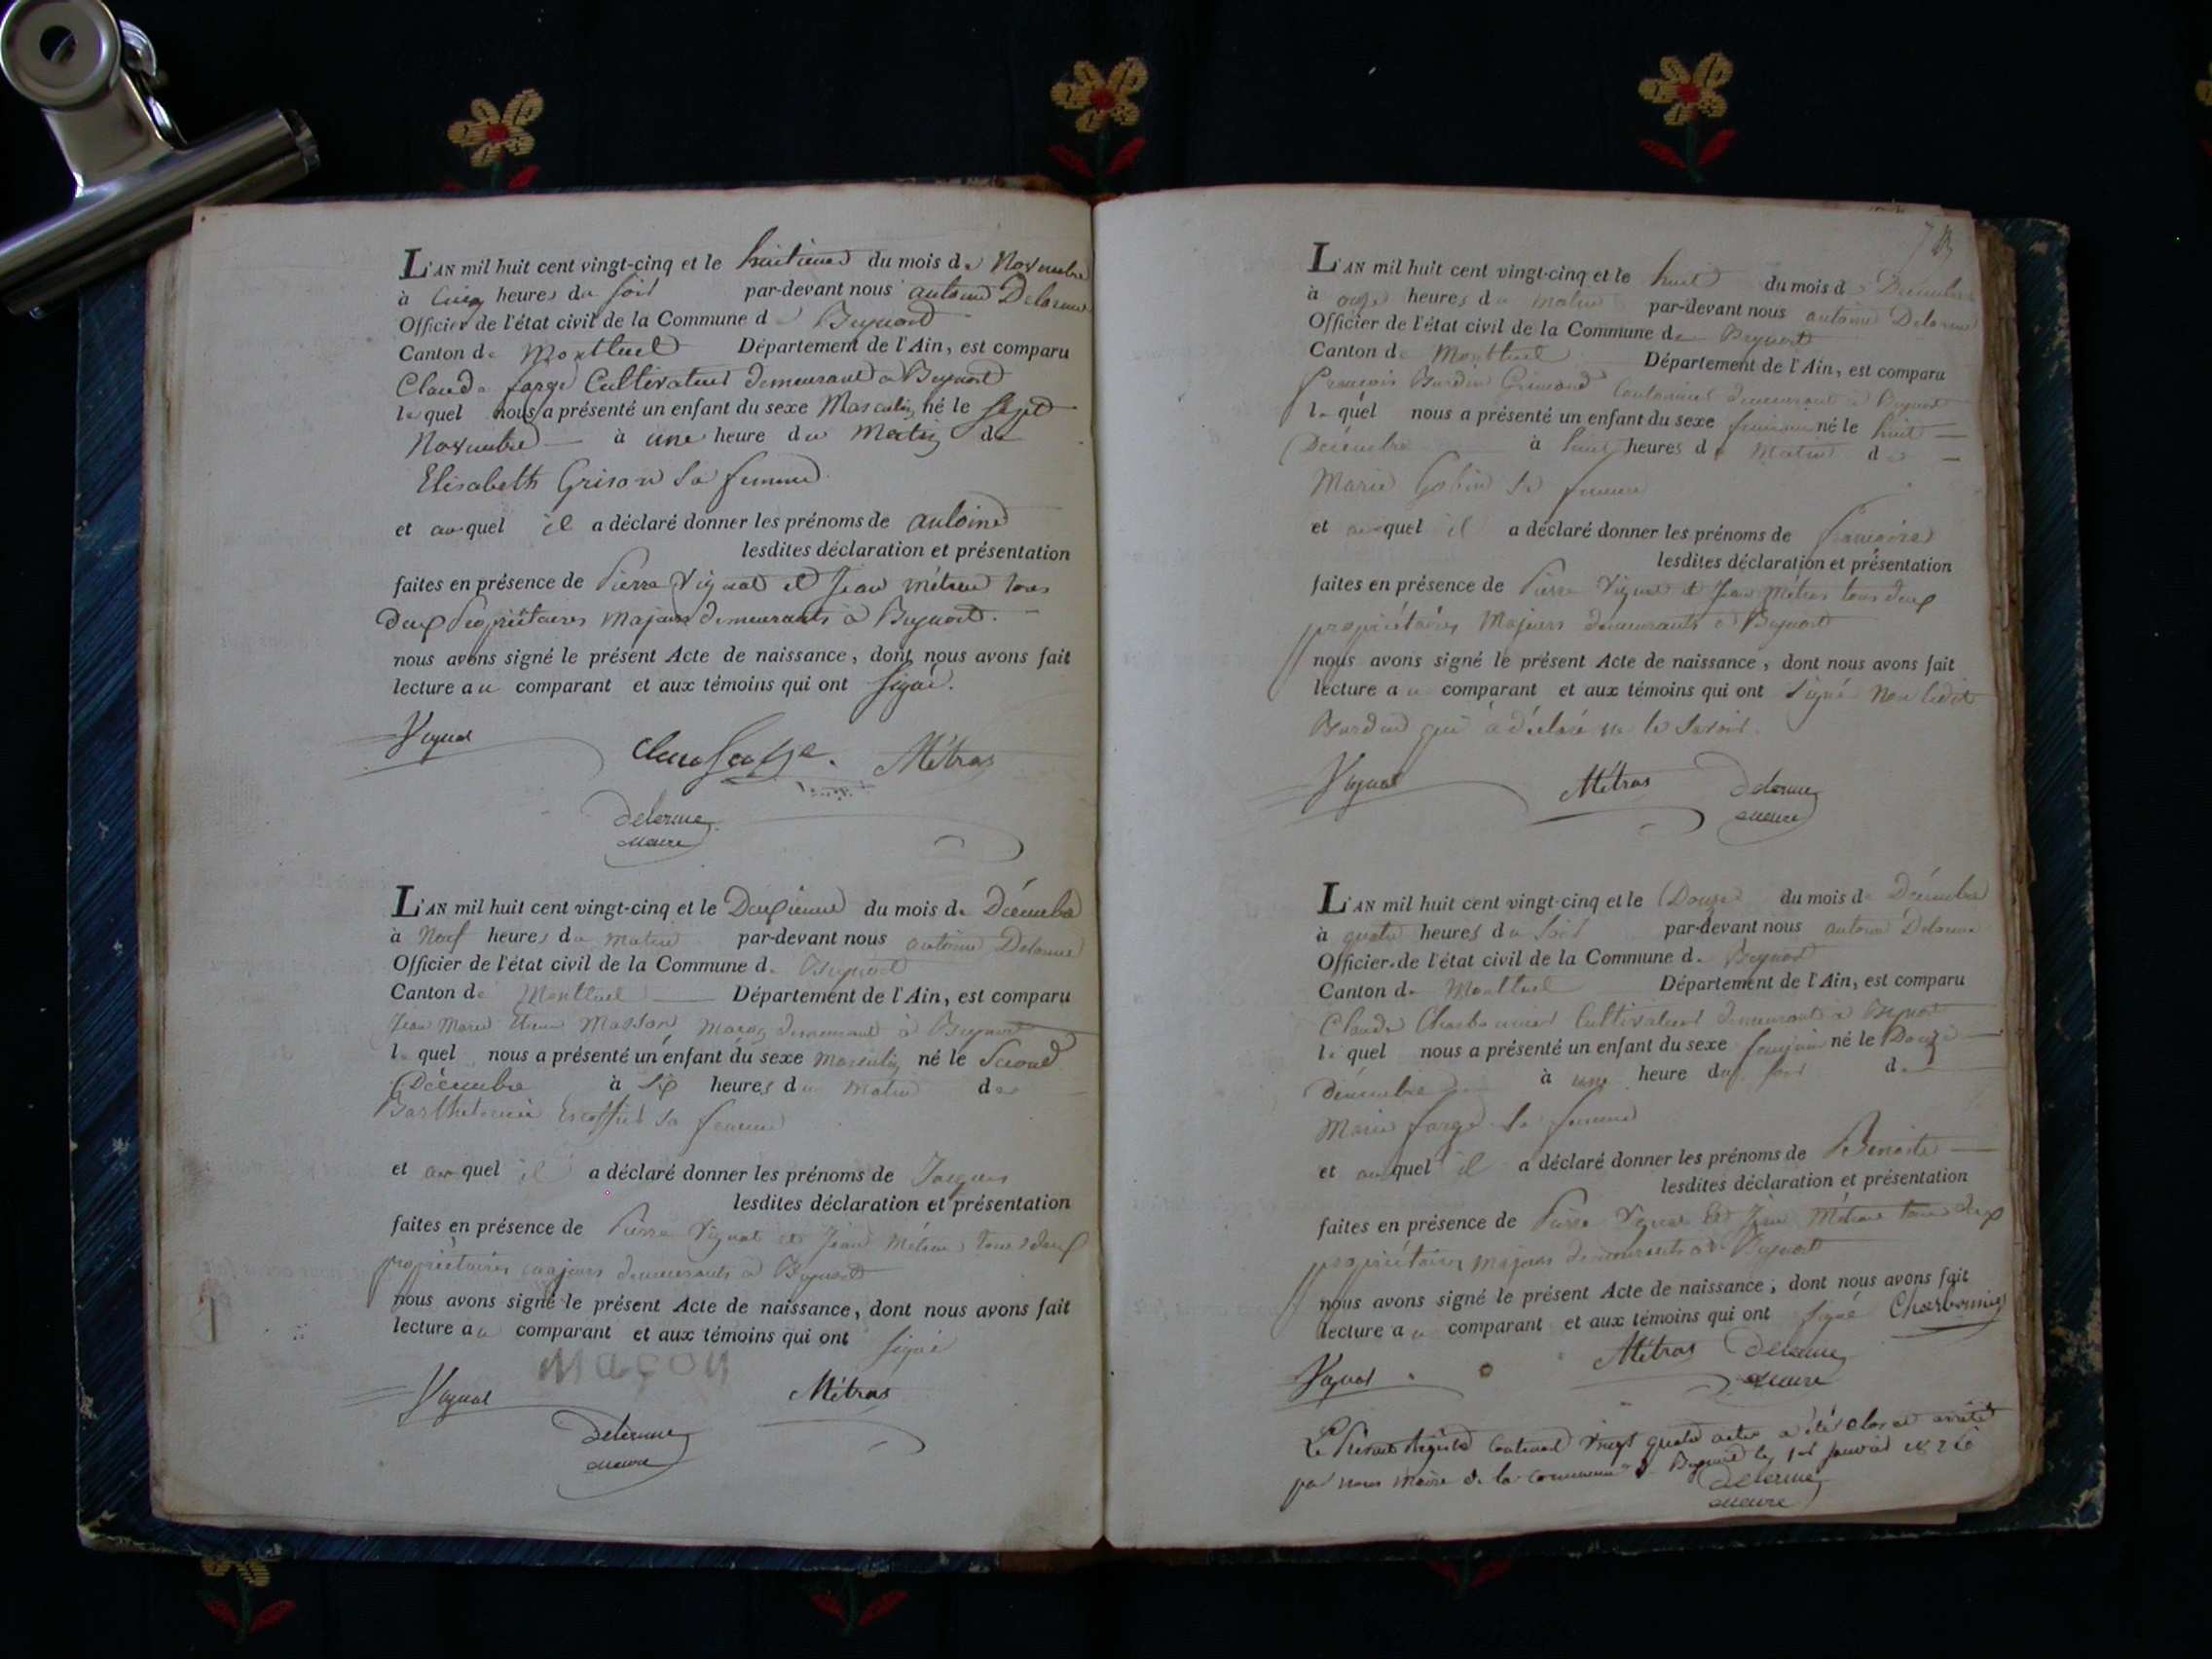 L'AN mil huit cent vingt-cinq et le huitieme du mois de Novembre
à cinq heures du soir par-devant nous antoine Delorme
Officier de l'état civil de la Commune de Beynost
Canton de Montluel Département de l'Ain, est comparu
Claude farge Cultivateur demeurant a Beynost
lequel nous a présenté un enfant du sexe Masculin né le sept
Novembre à une heure du Matin de
Elisabeth Grison sa femme
et auquel il a déclaré donner les prénoms de antoine
lesdites déclaration et présentation
faites en présence de Pierre Vignat et Jean métras tous
deux Propriétaires majeurs demeurants à Beynost.
nous avons signé le présent Acte de naissance, dont nous avons fait
lecture au comparant et aux témoins qui ont signé.
Vignat Métras
Delorme
maire
L'AN mil huit cent vingt-cinq et le Deuxieme du mois de Décembre
à Neuf heures du matin par-devant nous antoine Delorme
Officier de l'état civil de la Commune de Beynost
Canton de Montluel Département de l'Ain, est comparu
Jean Marie Masson maçon demeurant à Beynost
lequel nous a présenté un enfant du sexe masculin né le Second
Décembre à Six heures du matin de
Barthelemie Escoffier sa femme
et auquel il a déclaré donner les prénoms de Jacques
lesdites déclaration et présentation
faites en présence de Pierre Vignat et Jean Métras tous deux
propriétaires majeurs demeurants à Beynost
nous avons signé le présent Acte de naissance, dont nous avons fait
lecture au comparant et aux témoins qui ont signé
maçon
Vignat Métras
Delorme
maire
L'AN mil huit cent vingt-cinq et le huit du mois de Décembre
à onze heures du matin par-devant nous antoine Delorme
Officier de l'état civil de la Commune de Beynost
Canton de Montluel Département de l'Ain, est comparu
François Burdin Grimond Cantonnier demeurant à Beynost
lequel nous a présenté un enfant du sexe féminin né le huit
Décembre à huit heures du Matin de
Marie sa femme
et auquel il a déclaré donner les prénoms de françoise
lesdites déclaration et présentation
faites en présence de Pierre Vignat et Jean Métras tous deux
propriétaires Majeurs demeurants à Beynost
nous avons signé le présent Acte de naissance, dont nous avons fait
lecture au comparant et aux témoins qui ont signé Non ledit
Burdin qui a déclaré ne le savoir.
Vignat Métras Delorme
maire
L'AN mil huit cent vingt-cinq et le Douze du mois de Décembre
à quatre heures du soir par-devant nous antoine Delorme
Officier de l'état civil de la Commune de Beynost
Canton de Montluel Département de l'Ain, est comparu
Claude Charbonnier Cultivateur demeurant à Beynost
lequel nous a présenté un enfant du sexe féminin né le Douze
décembre à une heure du soir de
Marie farge sa femme
et auquel il a déclaré donner les prénoms de Benoite
lesdites déclaration et présentation
faites en présence de Pierre Vignat et Jean Métras tous deux
propriétaires majeurs demeurants à Beynost
nous avons signé le présent Acte de naissance, dont nous avons fait
lecture au comparant et aux témoins qui ont signé Charbonnier
Vignat Métras Delorme
maire
Le Présent Registre Contenant Vingt quatre actes a été clos et arrêté
par nous Maire de la commune de Beynost le 1er janvier 1826
Delorme
maire